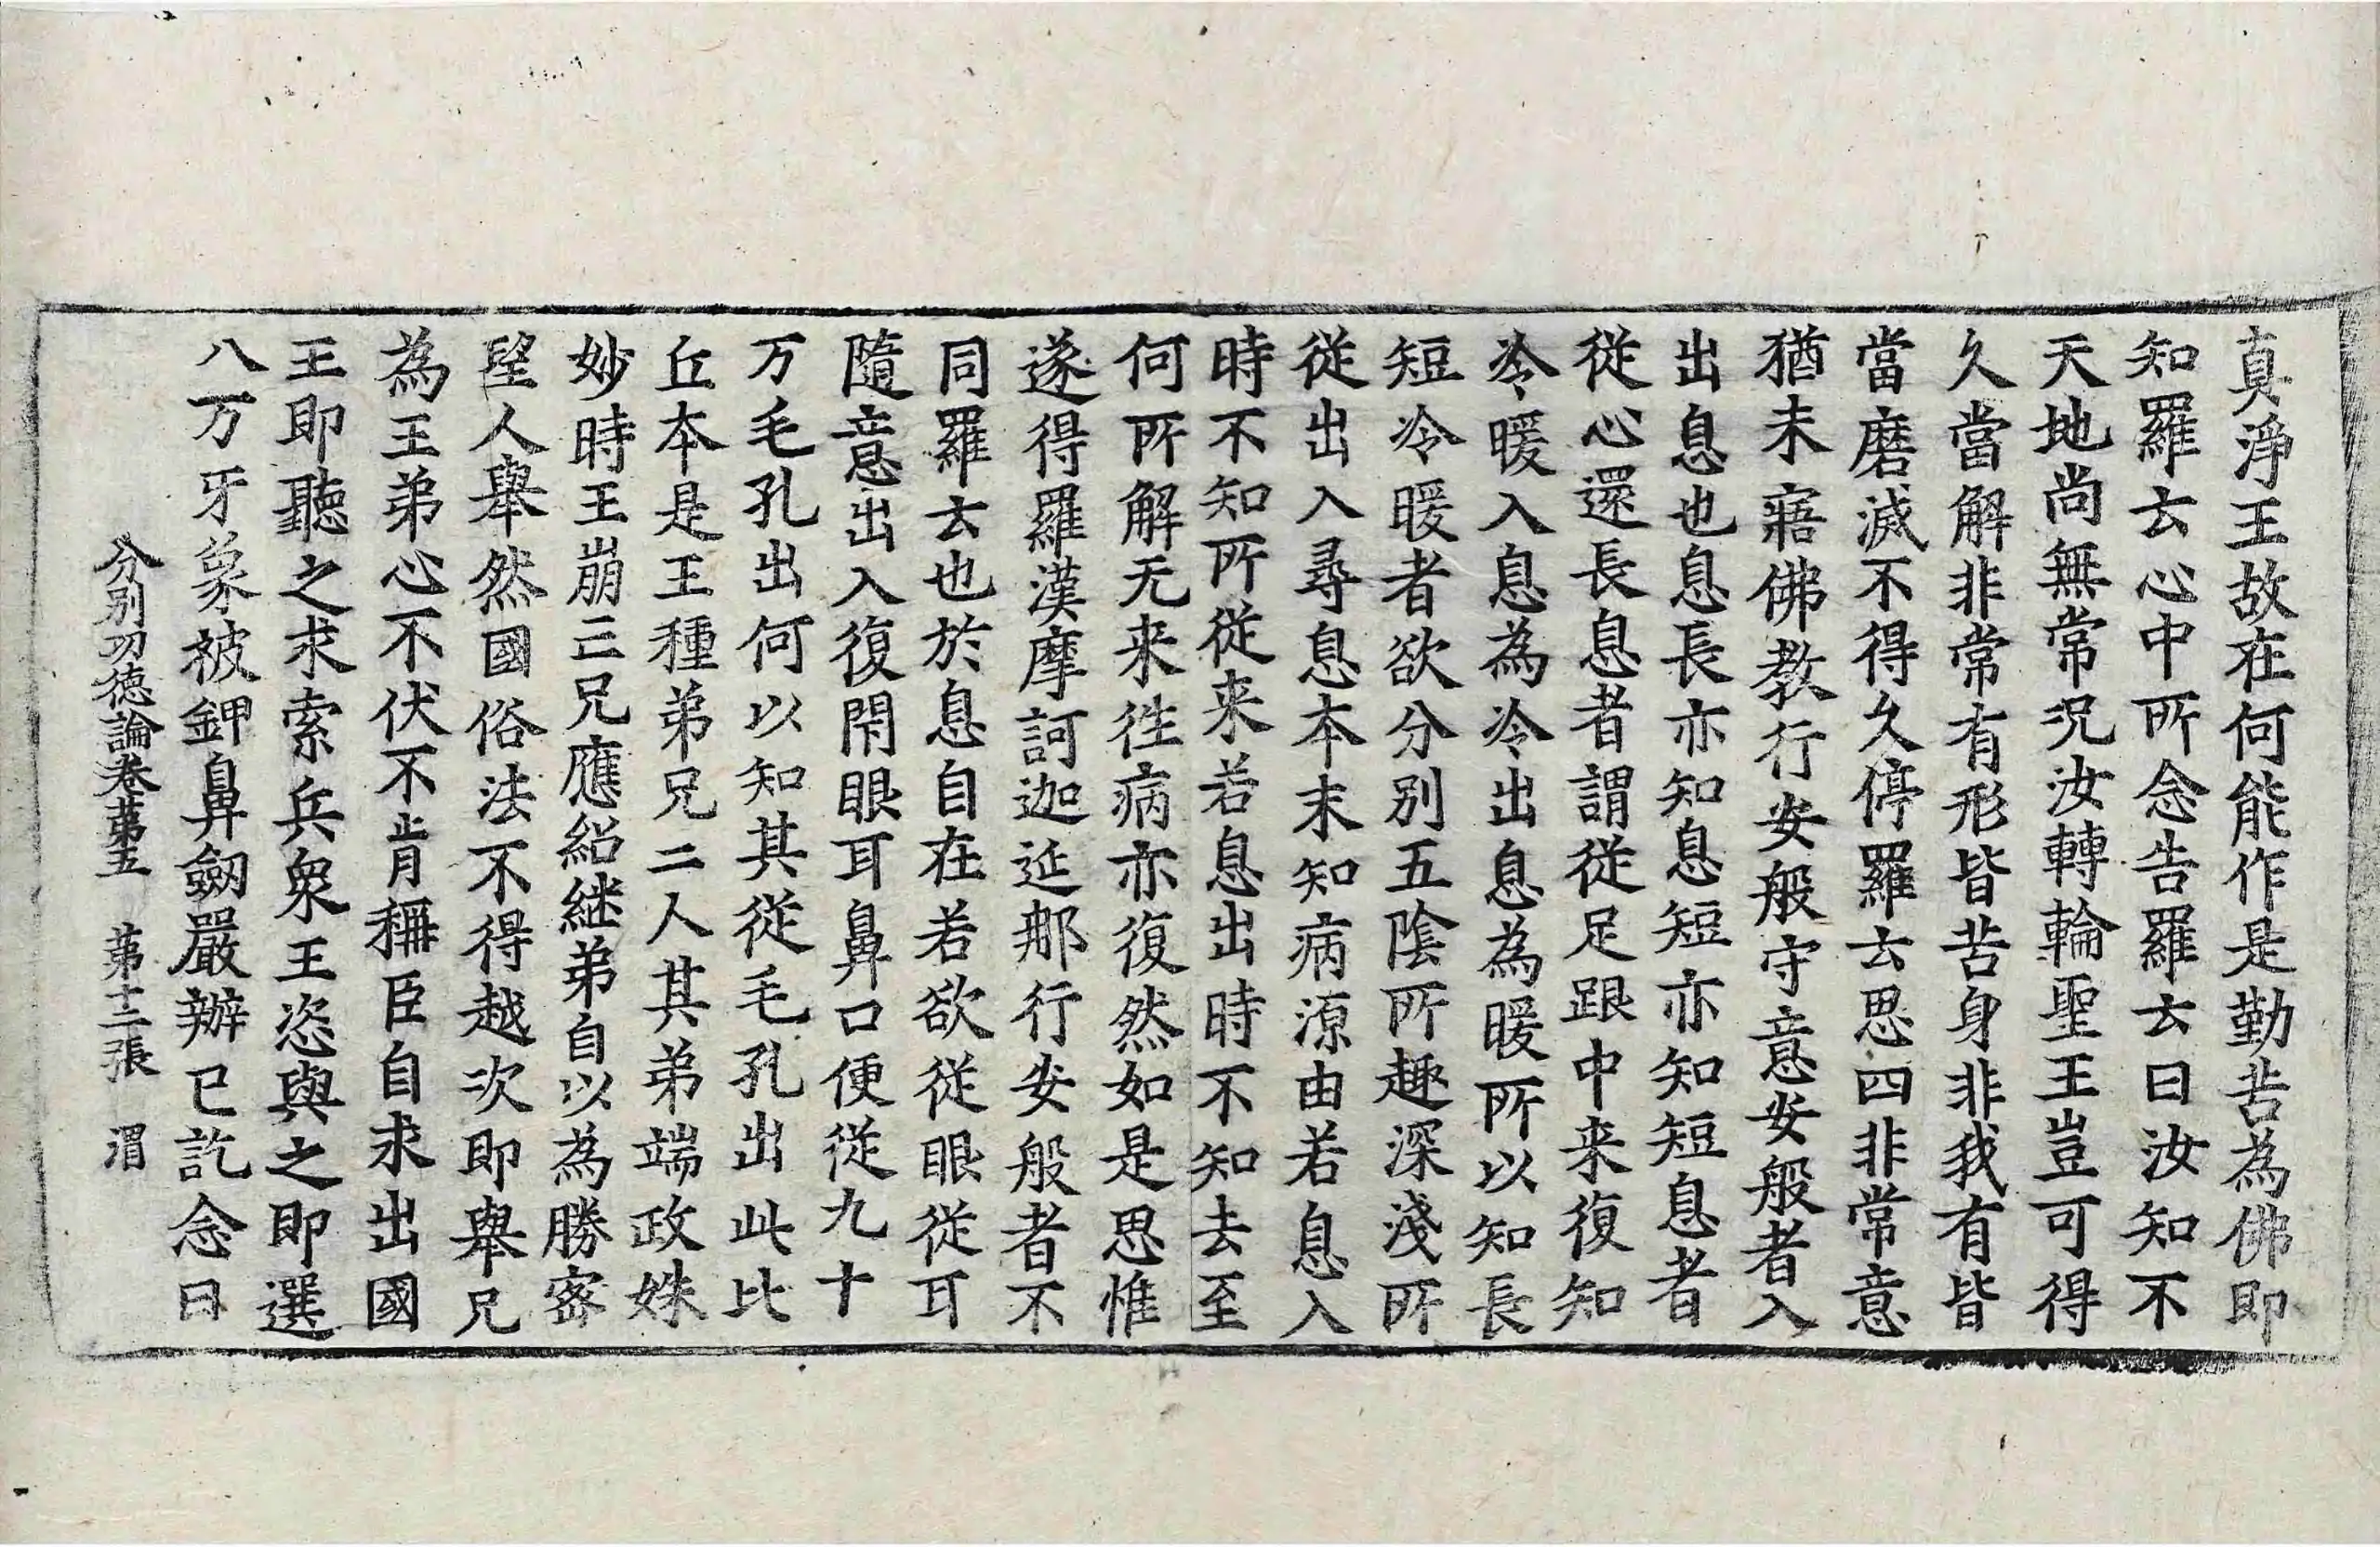 真淨王故在何能作是勤苦為佛即
知羅云心中所念告羅云曰汝知不
天地尚無常况汝轉輪聖王豈可得
久當解非常有形皆苦身非我有皆
當磨滅不得久停羅云思四非常意
猶未寤佛教行安般守意安般者入
出息也息長亦知息短亦知短息者
從心還長息者謂從足跟中来復知
冷暖入息為冷出息為暖所以知長
短冷暖者欲分別五陰所趣深淺所
從出入尋息本末知病源由若息入
時不知所從来若息出時不知去至
何所解无来往病亦復然如是思惟
遂得羅漢摩訶迦延那行安般者不
同羅云也於息自在若欲從眼從耳
隨意出入復閇眼耳鼻口便從九十
万毛孔出何以知其從毛孔出此比
丘本是王種弟兄二人其弟端政姝
妙時王崩三兄應紹継弟自以為勝密
望人舉然國俗法不得越次即舉兄
為王弟心不伏不肯稱臣自求出國
王即聽之求索兵衆王恣與之即選
八万牙象被鉀鼻劒嚴辦已訖念曰
分別㓛徳論卷苐五　苐十二張　渭